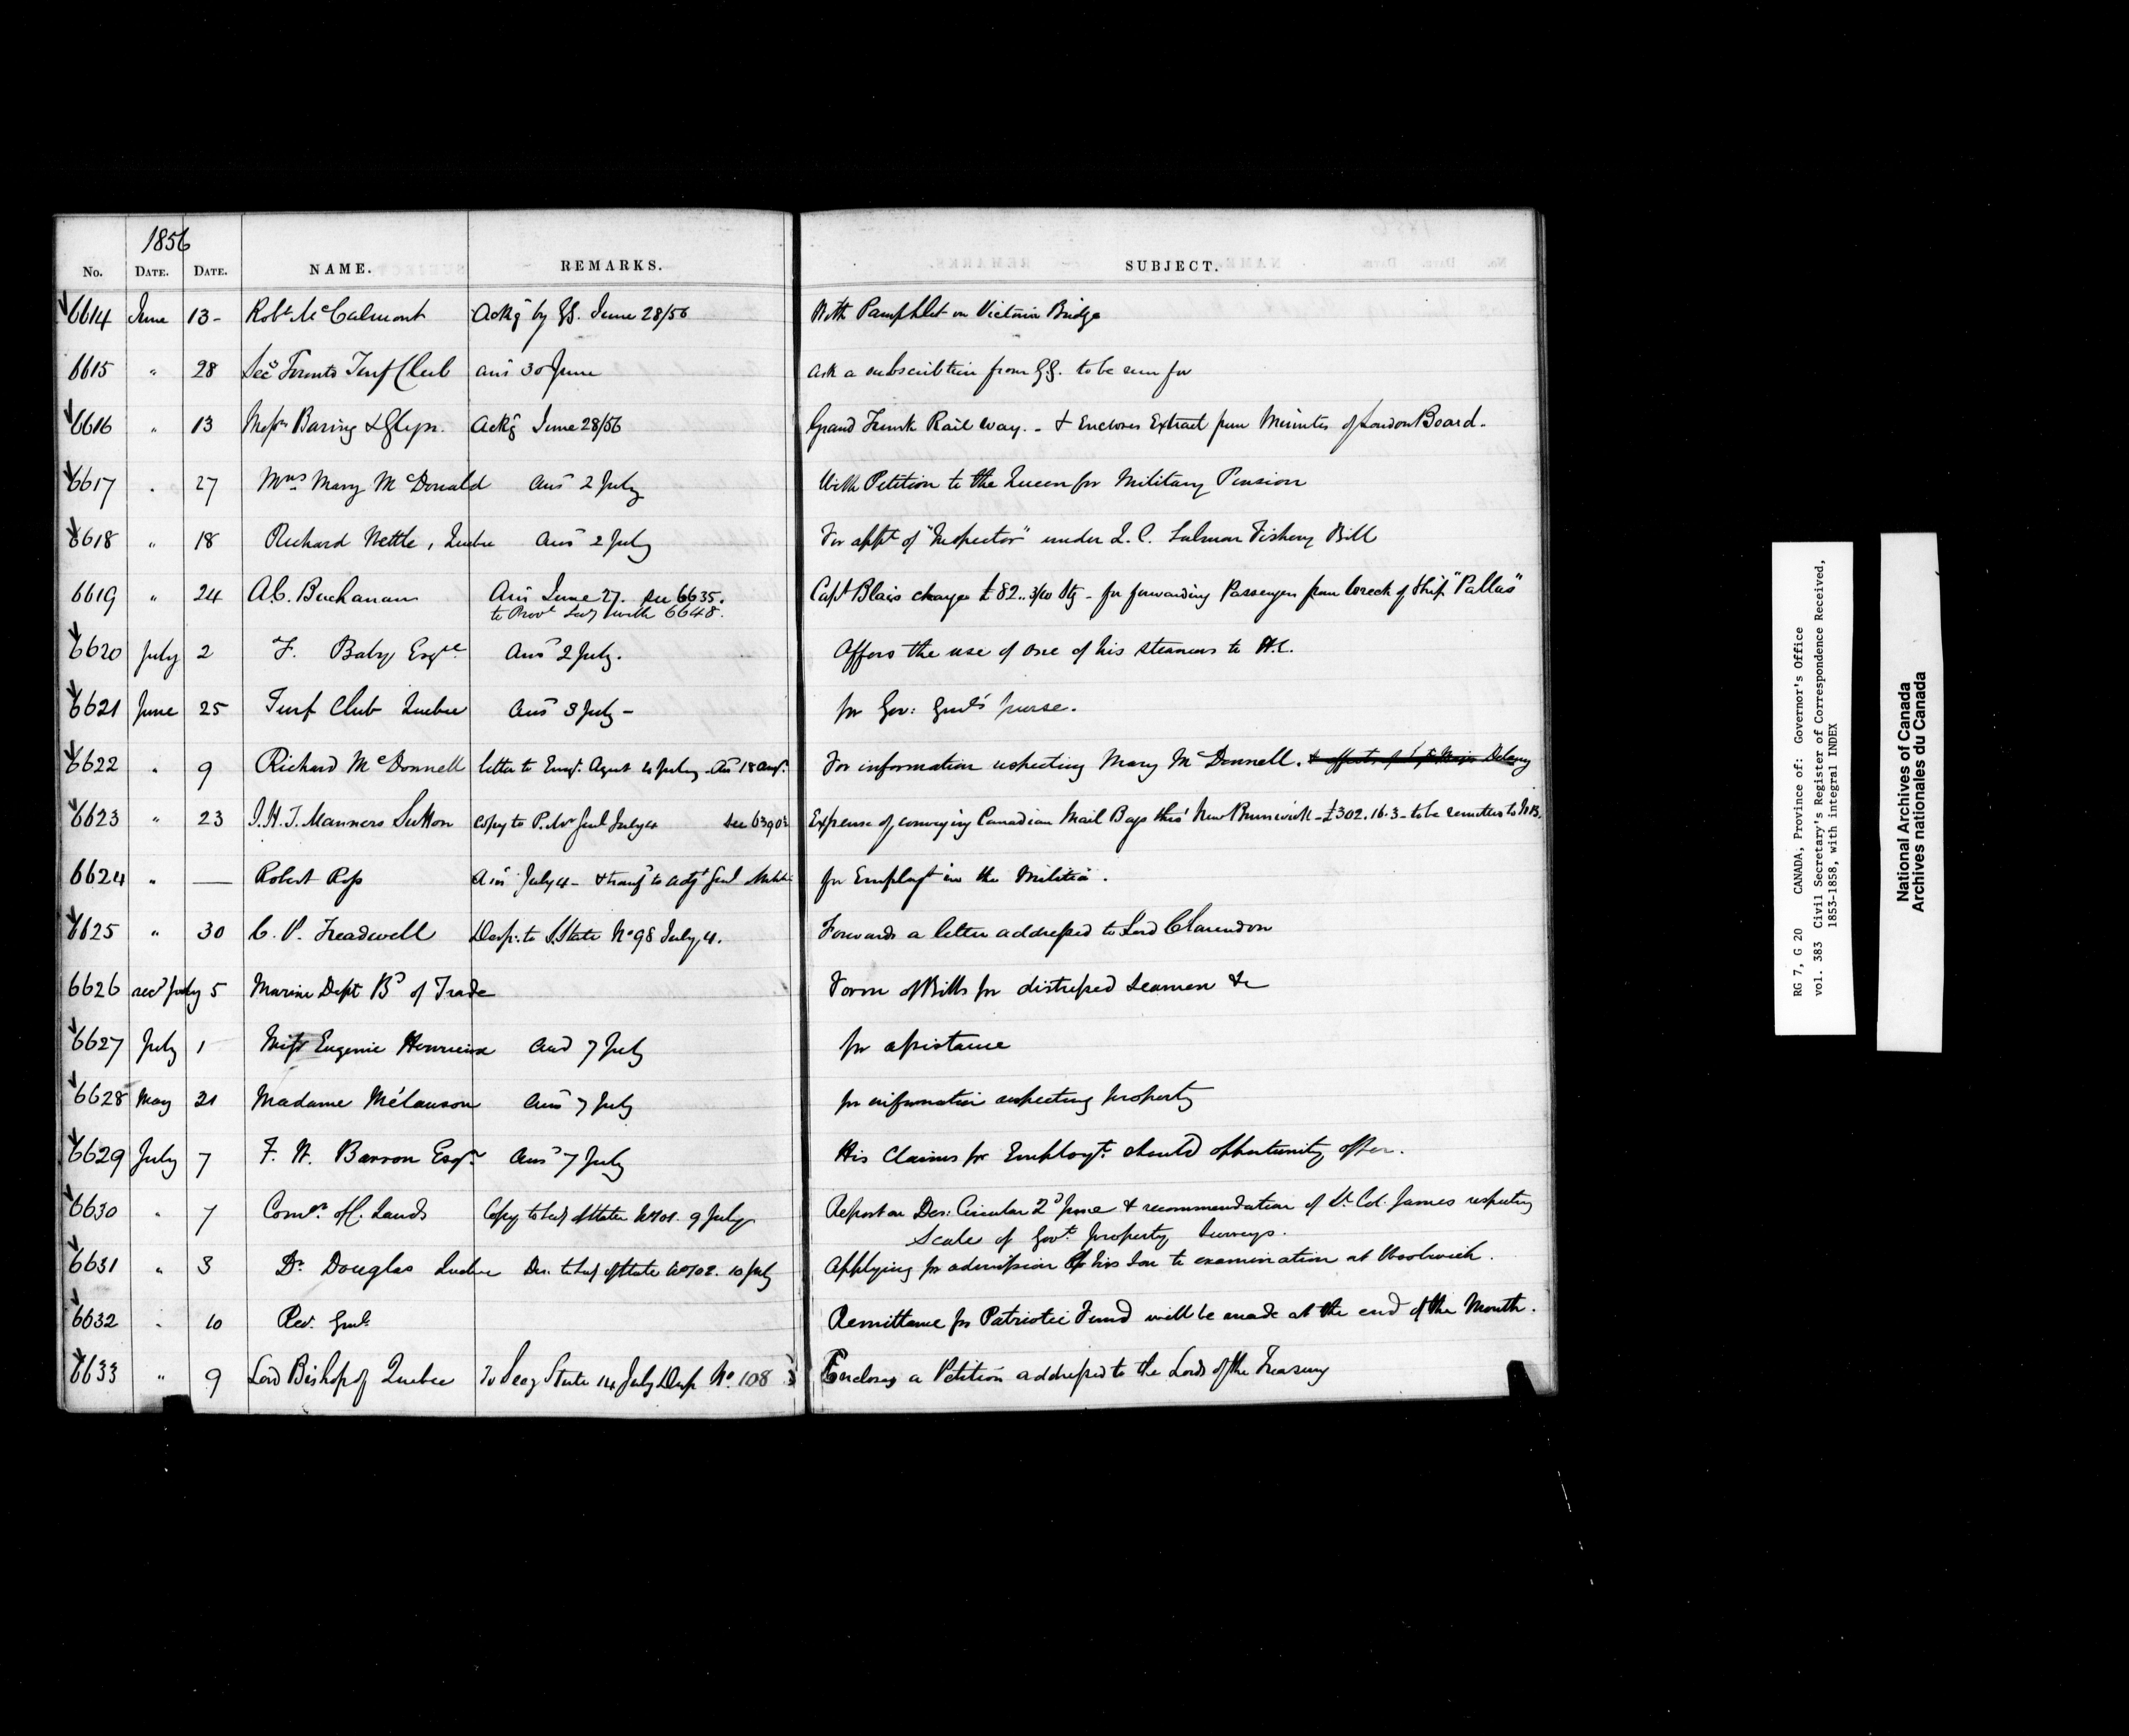 1856
No. DATE. DATE. NAME. REMARKS. SUBJECT.
6614 June 13 - Robt. McCalmont Ackg by GG. June 28/56 With Pamphlet on Victoria Bridge
6615 " 28 Secy Toronto Turf Club ans 30 June ask a subscribtion from G.G. to be run for
6616 " 13 Messrs Baring & Glyn. Ackg June 28/56 Grand Trunk Rail way. - & Encloses Extract from Minutes of London Board.
6617 " 27 Mrs Mary McDonald Ans 2 July With Petition to the Queen for Military Pension
6618 " 18 Richard Nettle, Quebec Ans 2 July For appt of "Inspector" under L.C. Salmon Fishery Bill
6619 " 24 A.C. Buchanan Ans June 27. see 6635. Capt Blais charges £82..3/10 Stg - for forwarding Passengers from wreck of Ship "Pallas"
to Provl Secy with 6648.
6620 July 2 F. Baby Esqre Ans 2 July. Affors the use of one of his steamers to H.E.
6621 June 25 Turf Club Quebec Ans 3 July - for Gov: Genl's purse.
6622 " 9 Richard McDonnell letter to Emigt. Agent 4 July - Ans 18 Augt. For information respecting Mary McDonnell. & effects of Delany
6623 " 23 J.H.T. Manners Sutton Copy to P.Mr Genl July 4 see 6390½ Expense of conveying Canadian Mail Bags thro' New Brunswick - £302.16.3 - to be remitted to N.B.
6624 " — Robert Ross Ans July 4 - & transf to Adjt Genl Militia for Employt in the Militia.
6625 " 30 C. P. Treadwell Desp. to S. State No 98 July 4. Forwards a letter addressed to Lord Clarendon
6626 recd July 5 Marine Dept Bd of Trade Form of Bills for distressed seamen &c
6627 July 1 Miss Eugenie Henrieux Ansd 7 July for assistance
6628 May 21 Madame Mélanson Ans 7 July for information respecting property
6629 July 7 F. W. Barron Esqr Ans 7 July His Claims for Employt. should opportunity offer.
6630 " 7 Comr. of C. Lands Copy to Secy of State No 101. 9 July Report on Des: Circular 2d June & recommendation of Lt. Col. James respecting
Scale of Govt. property Surveys.
6631 " 3 Dr. Douglas Quebec Des. to Secy of State No 102. 10 July Applying for admission of his Son to examination at Woolwich.
6632 " 10 Rec. Genl. Remittance for Patriotic Fund will be made at the end of the Month.
6633 " 9 Lord Bishop of Quebec To Secy State 14 July Desp No. 108 Encloses a Petition addressed to the Lords of the Treasury
RG 7, G 20 CANADA, Province of: Governor's Office
vol. 383 Civil Secretary's Register of Correspondence Received,
1853-1858, with integral INDEX
National Archives of Canada
Archives nationales du Canada